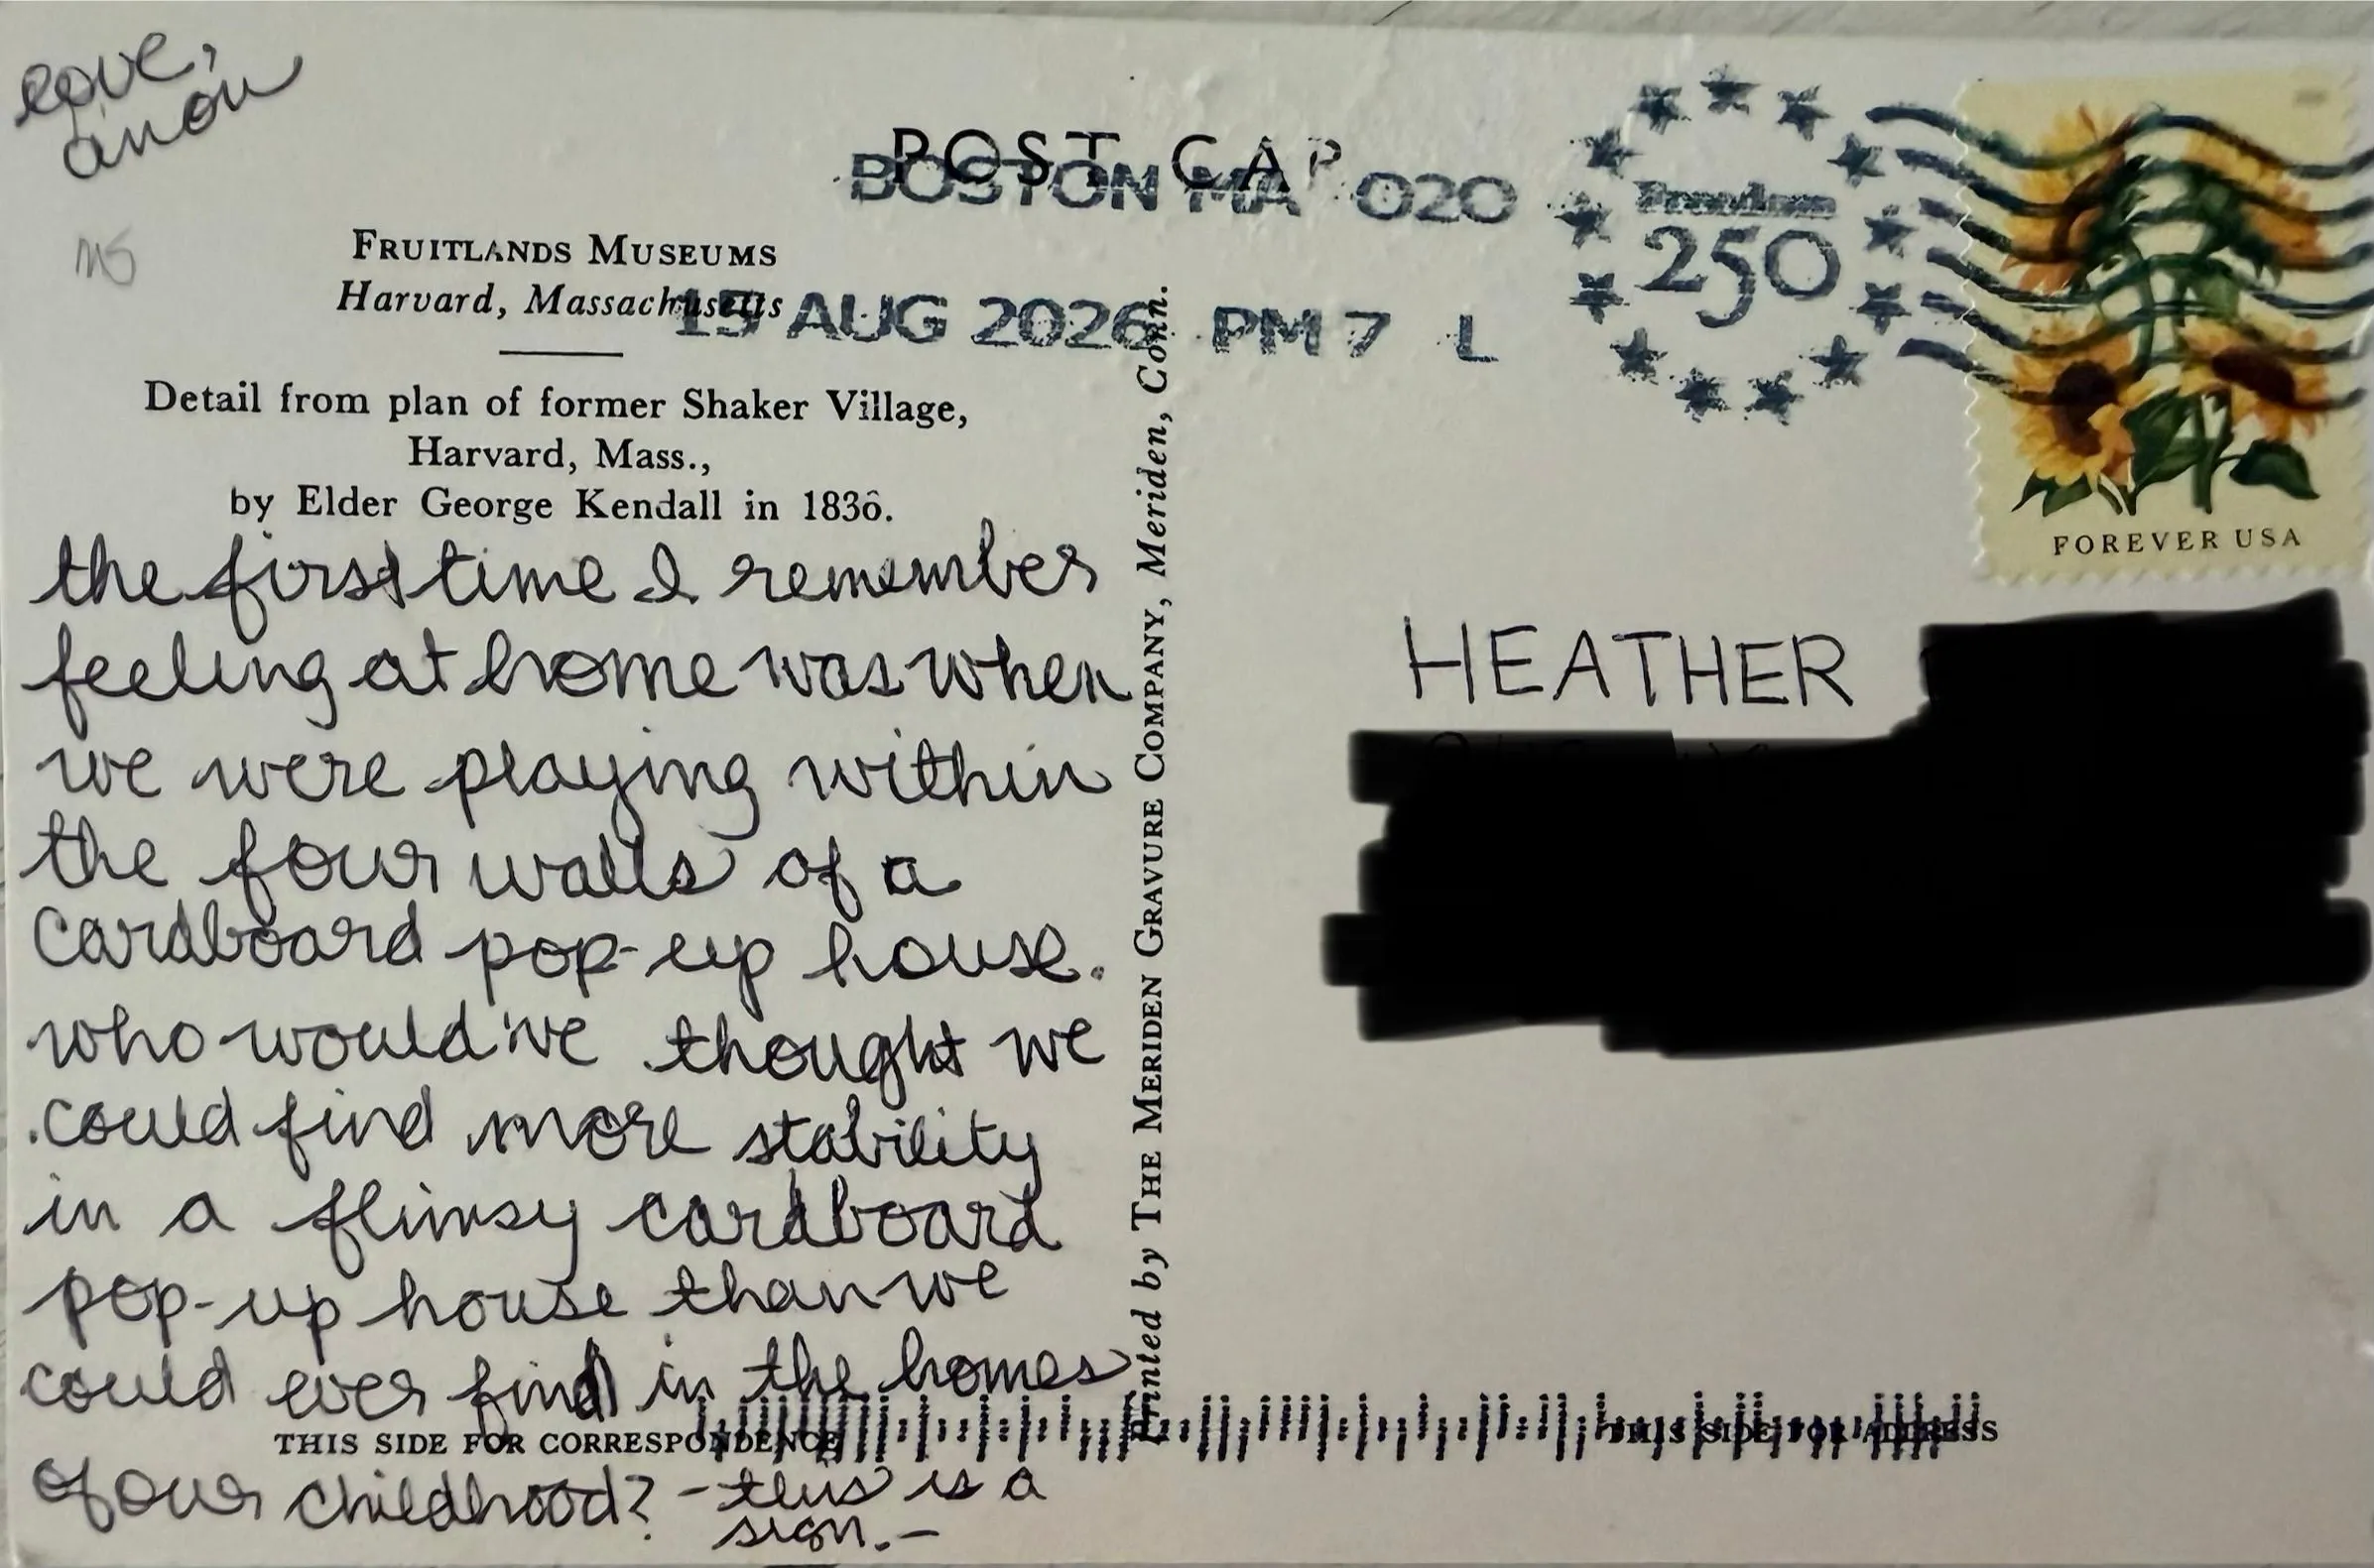 love,
anon
POST CAR
BOSTON MA 020
15 AUG 2026 PM 7 L
Freedom
250
FOREVER USA
FRUITLANDS MUSEUMS
Harvard, Massachusetts
Detail from plan of former Shaker Village,
Harvard, Mass.,
by Elder George Kendall in 1836.
the first time I remember
feeling at home was when
we were playing within
the four walls of a
cardboard pop-up house.
who would've thought we
could find more stability
in a flimsy cardboard
pop-up house than we
could ever find in the homes
of our childhood? - this is a
sign. -
THIS SIDE FOR CORRESPONDENCE
Printed by THE MERIDEN GRAVURE COMPANY, Meriden, Conn.
HEATHER
THIS SIDE FOR ADDRESS